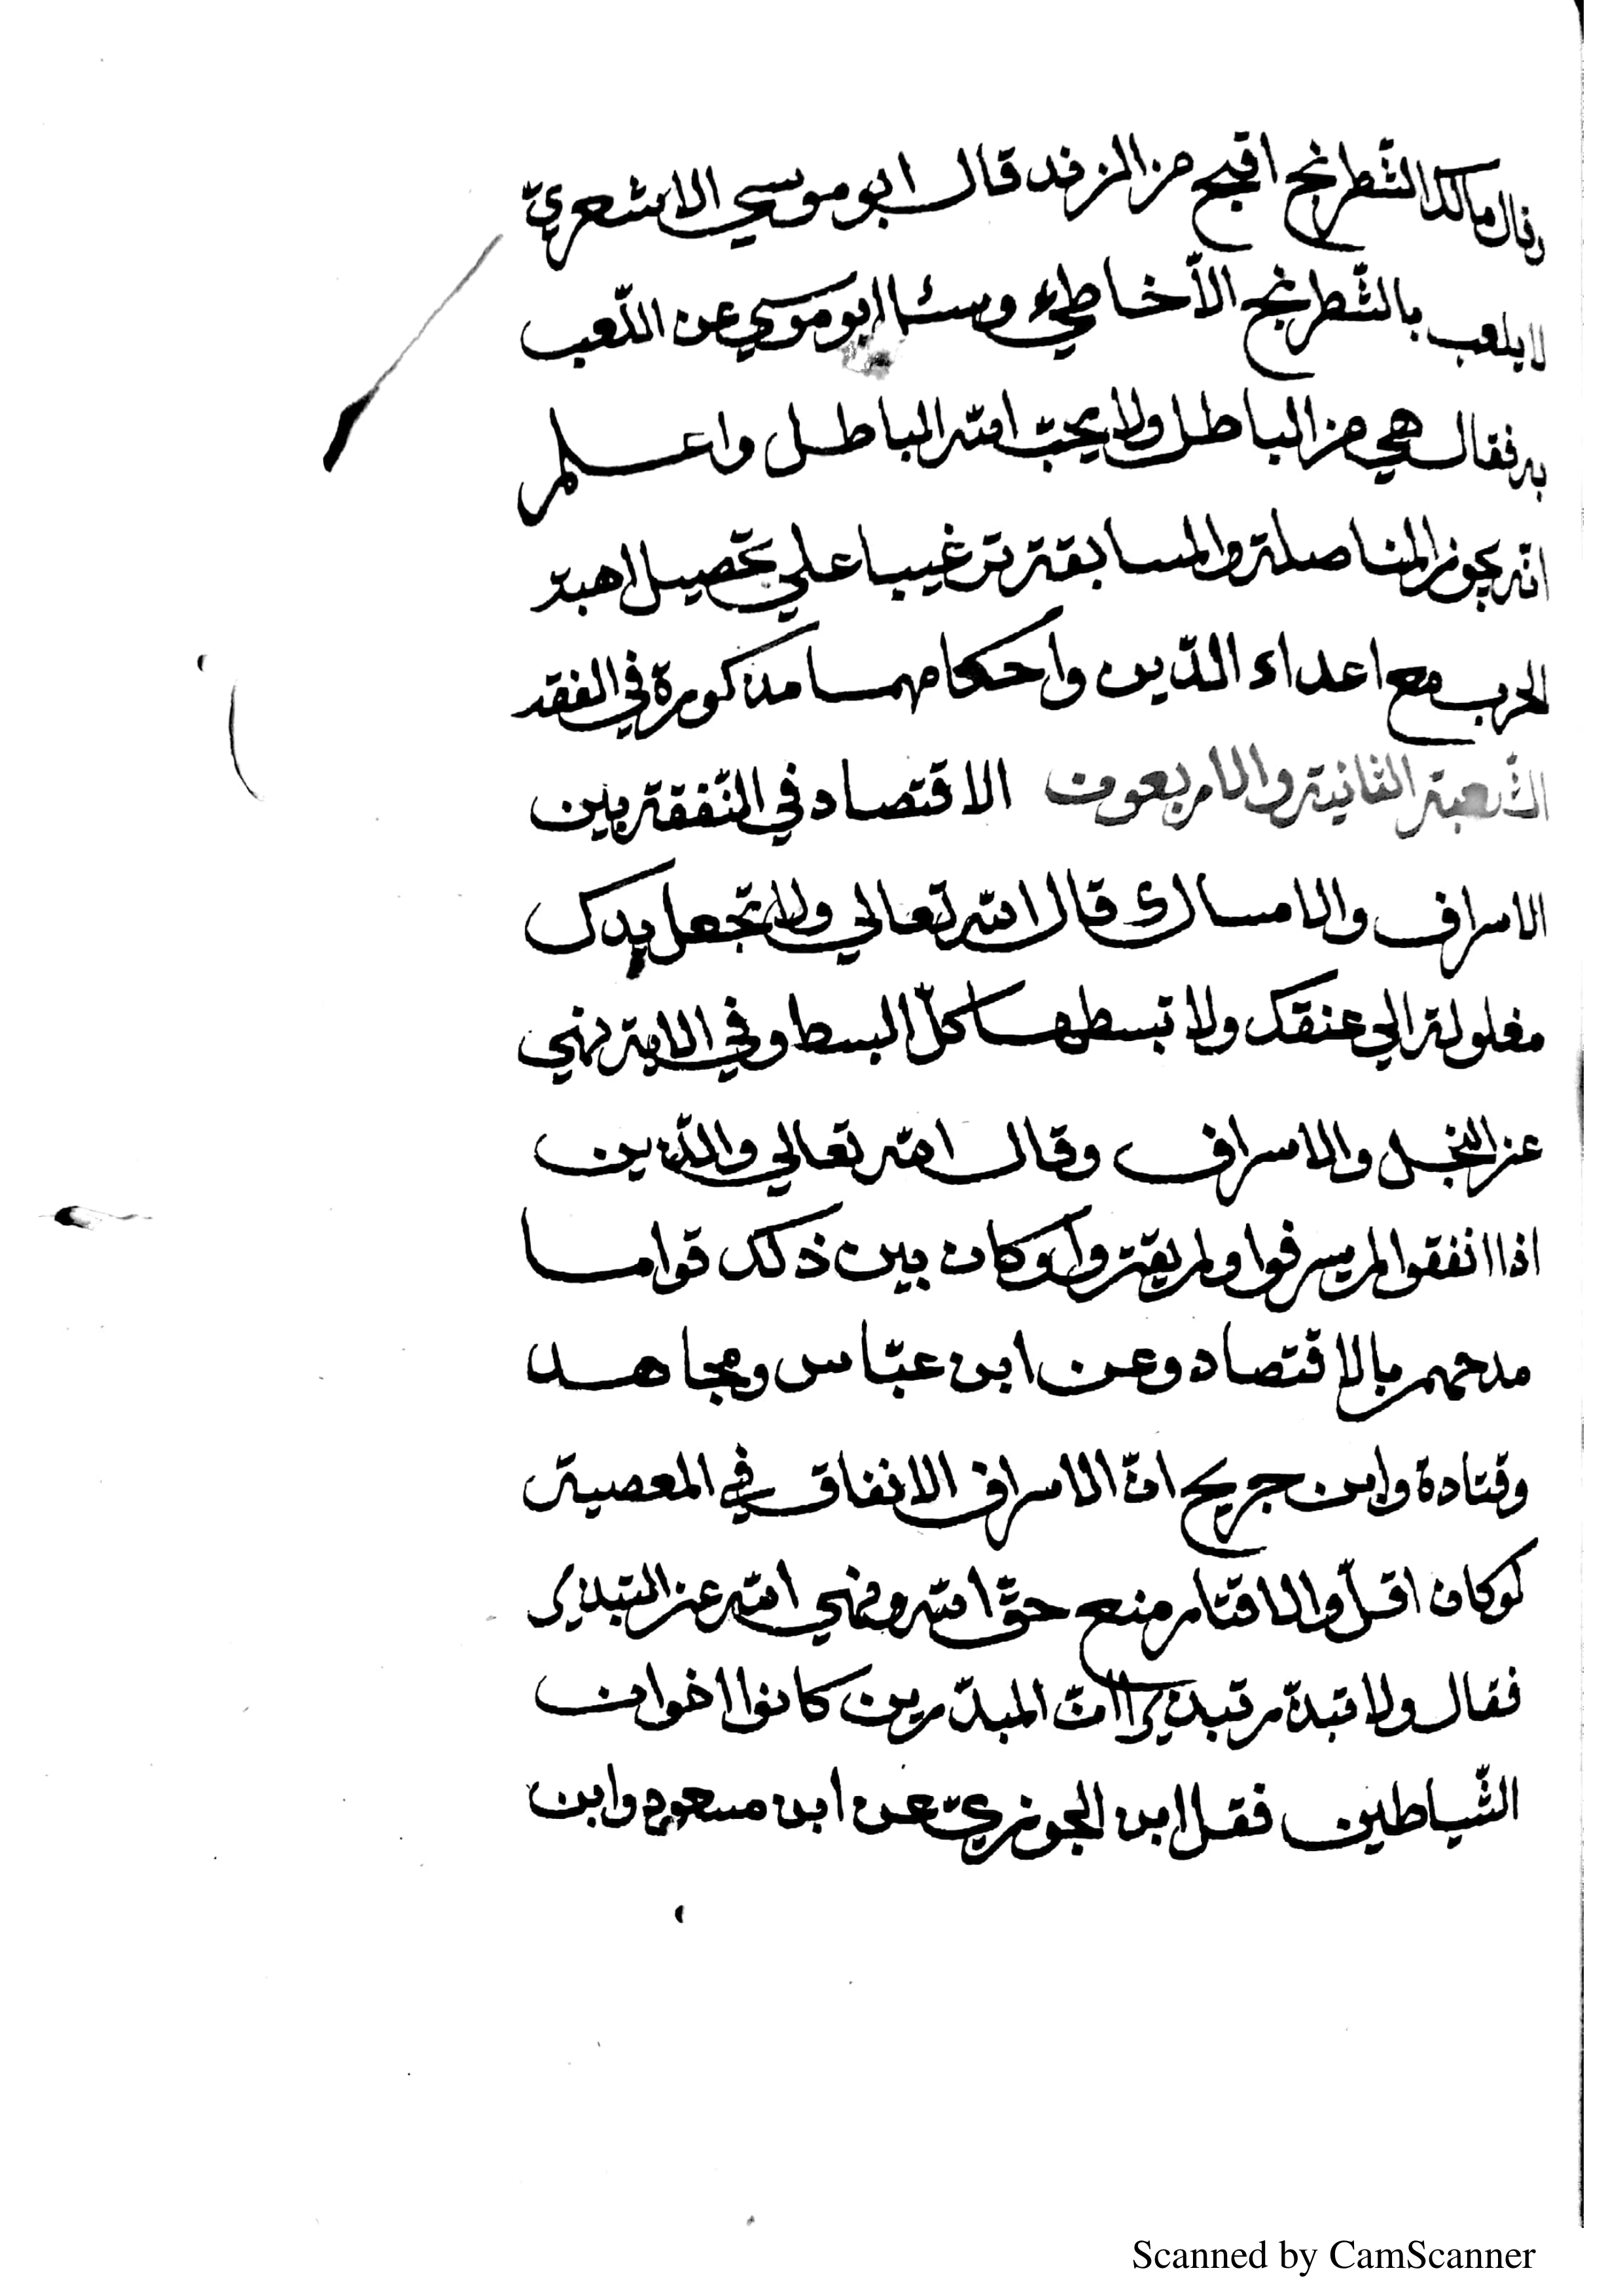 وقال مالك الشّطرنج اقبح من النرد قال ابو موسي الاشعريّ
لا يلعب بالشّطرنج الّا خاطيء وسئل ابو موسي عن اللّعب
به فقال هي من الباطل ولا يحبّ الله الباطل واعلم
انّه يجوز المناضلة والمسابقة ترغيبا علي تحصيل اهبة
الحرب مع اعداء الدّين واحكامهما مذكورة في الفقه
الشّعبة الثانية والاربعون الاقتصاد في النّفقة بين
الاسراف والامساك قال الله تعالي ولا تجعل يدك
مغلولة الي عنقك ولا تبسطها كلّ البسط وفي الاية نهي
عن البخل والاسراف وقال الله تعالي والّذين
اذا انفقوا لم يسرفوا ولم يقتروا وكان بين ذلك قواما
مدحهم بالاقتصاد وعن ابن عبّاس ومجاهد
وقتادة وابن جريج انّ الاسراف الانفاق في المعصية
لو كان اقلّ والاقتار منع حقّ الله ونهي الله عن التبذير
فقال ولا تبذّر تبذيرا انّ المبذّرين كانوا اخوان
الشّياطين فقل ابن الجوزيّ عن ابن مسعود وابن
Scanned by CamScanner